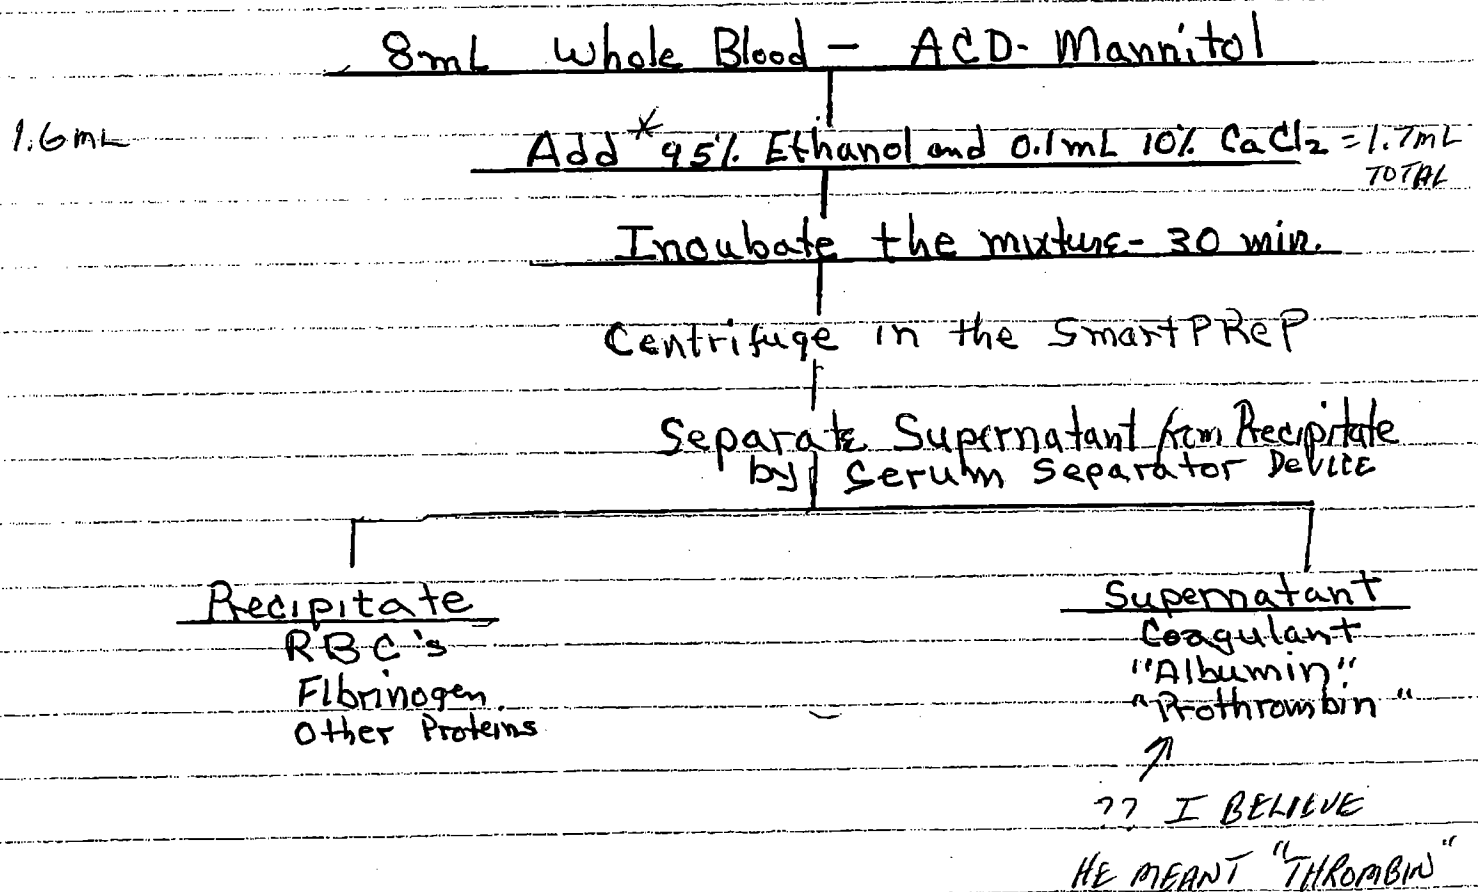 8mL Whole Blood - ACD- Mannitol
1.6mL
Add * 95% Ethanol and 0.1mL 10% CaCl2 = 1.7mL
TOTAL
Incubate the mixture- 30 min.
Centrifuge in the SmartPReP
Separate Supernatant from Precipitate
by Serum Separator Device
Precipitate
RBC's
Fibrinogen.
Other Proteins
Supernatant
Coagulant
"Albumin"
"Prothrombin"
?? I BELIEVE
HE MEANT "THROMBIN"